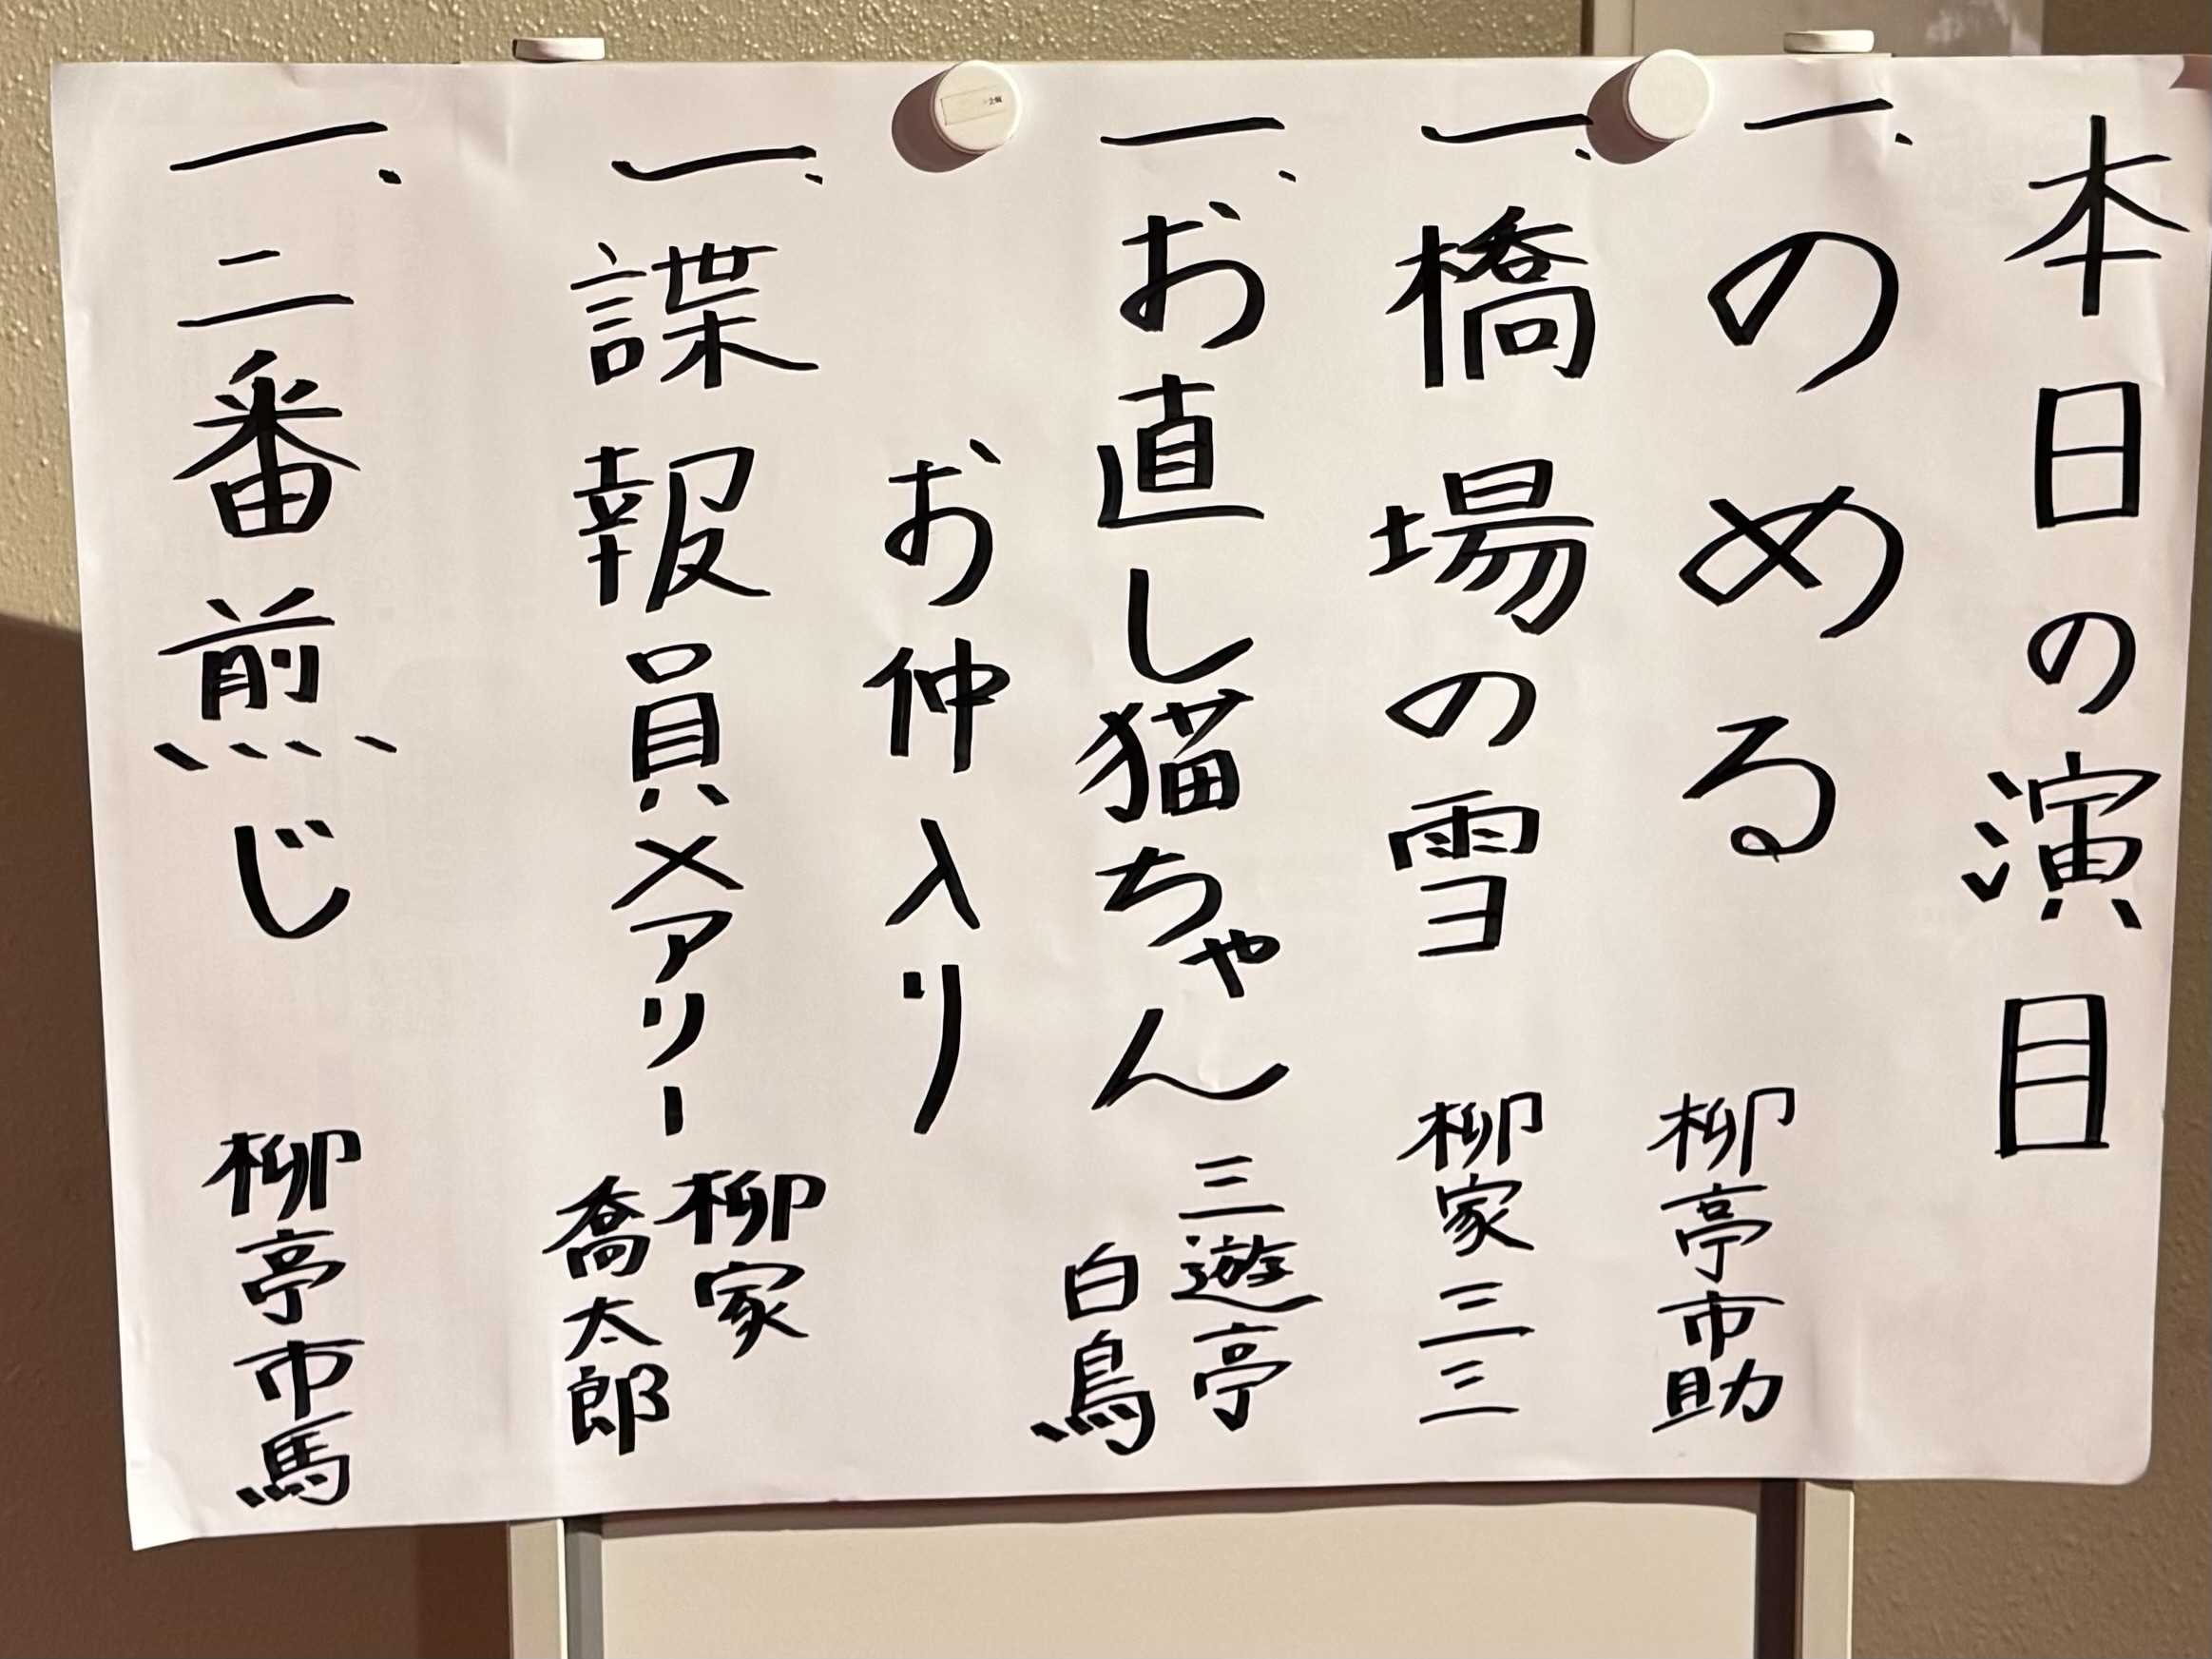 本日の演目
一、のめる 柳亭市助
一、橋場の雪 柳家三三
一、お直し猫ちゃん 三遊亭白鳥
お仲入り
一、諜報員メアリー 柳家喬太郎
一、二番煎じ 柳亭市馬